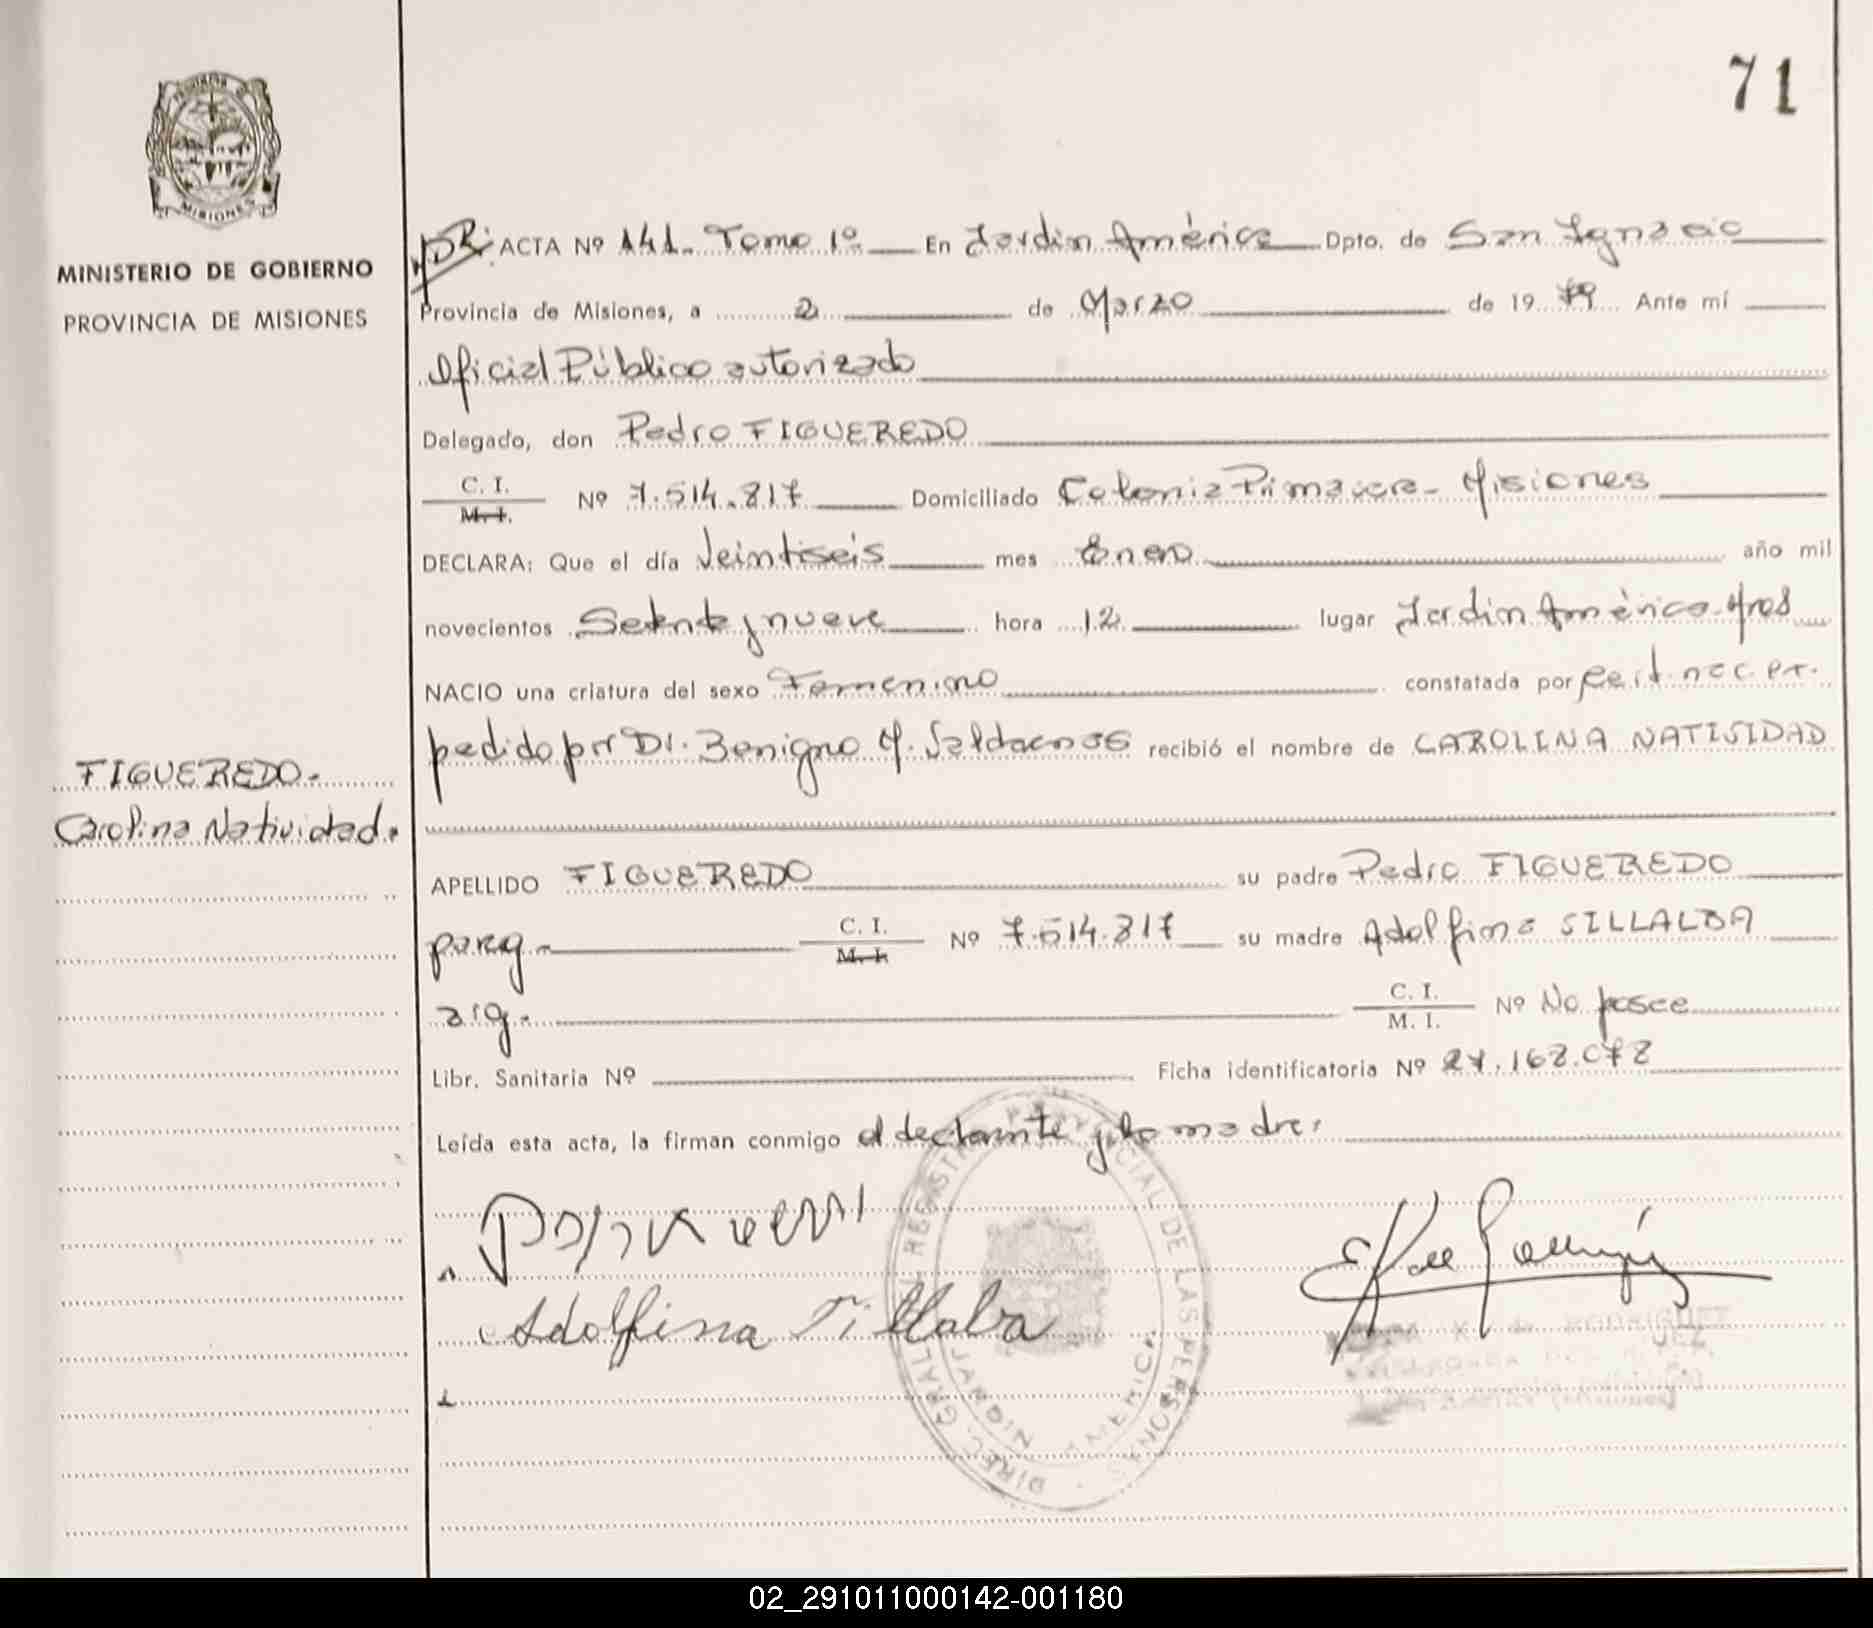 71
MISIONES
MINISTERIO DE GOBIERNO
PROVINCIA DE MISIONES
FIGUEREDO.
Carolina Natividad.
ACTA Nº 141. Tomo 1º. En Jardin América Dpto. de San Ignacio
Provincia de Misiones, a 2 de Marzo de 19 79 Ante mí
Oficial Público autorizado
Delegado, don Pedro FIGUEREDO
C. I. M. I. Nº 7.514.817 Domiciliado Colonia Primavera - Misiones
DECLARA: Que el día Veintiseis mes Enero año mil
novecientos Setenta y nueve hora 12 lugar Jardin América Mnes
NACIO una criatura del sexo Femenino constatada por Cert. nac. ex-
pedido por Dr. Benigno M. recibió el nombre de CAROLINA NATIVIDAD
APELLIDO FIGUEREDO su padre Pedro FIGUEREDO
parag. C. I. M. I. Nº 7.514.817 su madre Adolfina VILLALBA
arg. C. I. M. I. Nº No posee
Libr. Sanitaria Nº Ficha identificatoria Nº 27.162.072
Leída esta acta, la firman conmigo el declarante y la madre.
Adolfina Villalba
DIREC. GRAL. REGISTRO PROVINCIAL DE LAS PERSONAS
JARDIN AMERICA
RODRIGUEZ
02_291011000142-001180